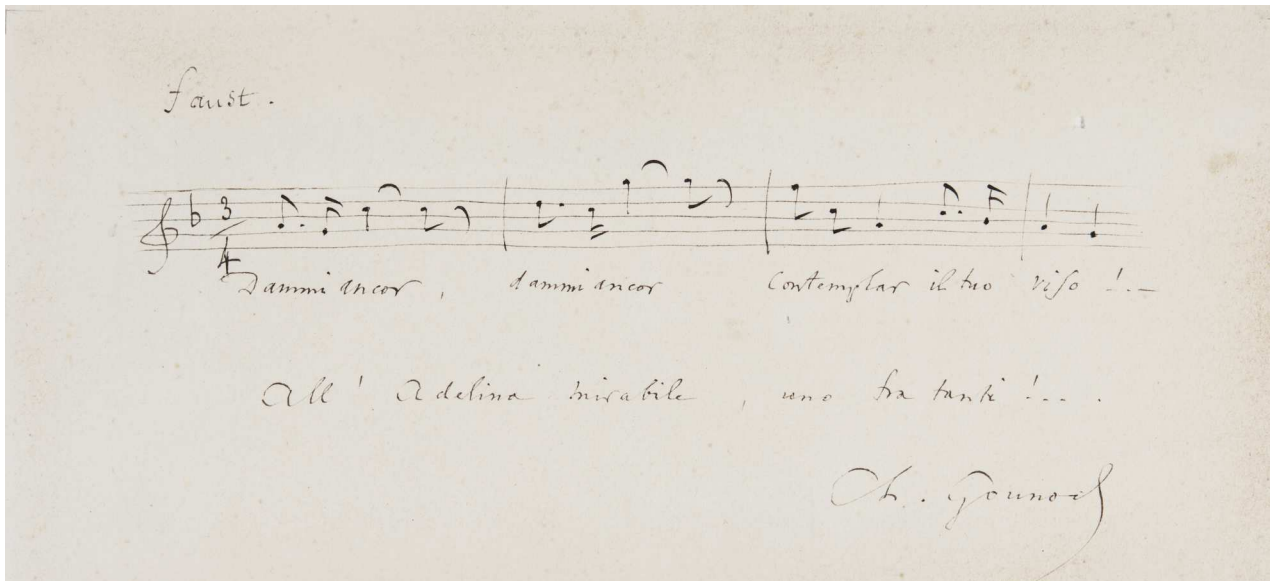 Faust.
3
4
Dammi ancor, dammi ancor Contemplar il tuo viso !..
All' Adelina mirabile, uno fra tanti !...
Ch. Gounod